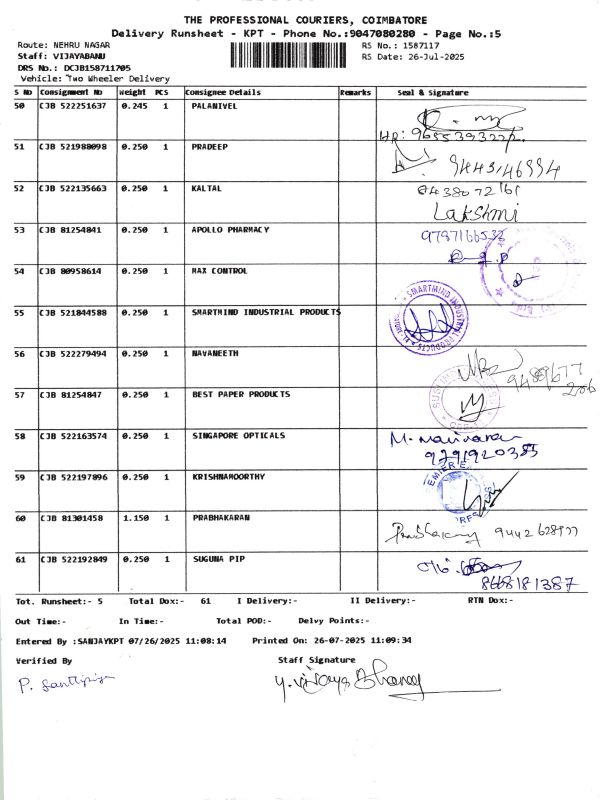 THE PROFESSIONAL COURIERS, COIMBATORE
Delivery Runsheet - KPT - Phone No.:9047080280 - Page No.:5
Route: NEHRU NAGAR RS No.: 1587117
Staff: VIJAYABANU RS Date: 26-Jul-2025
DRS No.: DCJB158711705
Vehicle: Two Wheeler Delivery
S No Consignment No Weight PCS Consignee Details Remarks Seal & Signature
50 CJB 522251637 0.245 1 PALANIVEL
51 CJB 521988098 0.250 1 PRADEEP
52 CJB 522135663 0.250 1 KALTAL
Lakshmi
53 CJB 81254841 0.250 1 APOLLO PHARMACY 9787166532
54 CJB 80958614 0.250 1 MAX CONTROL
55 CJB 521844588 0.250 1 SMARTMIND INDUSTRIAL PRODUCTS SMARTMIND INDUSTRIAL PRODUCTS
56 CJB 522279494 0.250 1 NAVANEETH
57 CJB 81254847 0.250 1 BEST PAPER PRODUCTS
58 CJB 522163574 0.250 1 SINGAPORE OPTICALS
9791920385
59 CJB 522197896 0.250 1 KRISHNAMOORTHY
60 CJB 81301458 1.150 1 PRABHAKARAN
61 CJB 522192849 0.250 1 SUGUNA PIP
868181387
Tot. Runsheet:- 5 Total Dox:- 61 I Delivery:- II Delivery:- RTN Dox:-
Out Time:- In Time:- Total POD:- Delvy Points:-
Entered By :SANJAYKPT 07/26/2025 11:08:14 Printed On: 26-07-2025 11:09:34
Verified By Staff Signature